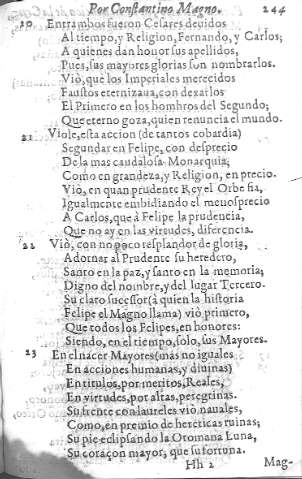 Por Constantino Magno. 244
20 Entrambos fueron Cesares deuidos
Al tiempo, y Religion, Fernando, y Carlos;
A quienes dan honor sus apellidos,
Pues, sus mayores glorias son nombrarlos.
Viò, que los Imperiales merecidos
Faustos eternizaua, con dexarlos
El Primero en los hombros del Segundo;
Que eterno goza, quien renuncia el mundo.
21 Viole, esta accion (de tantos cobardia)
Segundar en Felipe, con desprecio
De la mas caudalosa Monarquia;
Como en grandeza, y Religion, en precio.
Viò, en quan prudente Rey el Orbe fia,
Igualmente embidiando el menosprecio
A Carlos, que à Felipe la prudencia,
Que no ay en las virtudes, diferencia.
22 Viò, con no poco resplandor de gloria,
Adornar al Prudente su heredero,
Santo en la paz, y santo en la memoria;
Digno del nombre, y del lugar Tercero.
Su claro sucessor (à quien la historia
Felipe el Magno llama) viò primero,
Que todos los Felipes, en honores:
Siendo, en el tiempo, solo, sus Mayores.
23 En el nacer Mayores (mas no iguales
En acciones humanas, y diuinas)
En titulos, por meritos, Reales,
En virtudes, por altas, peregrinas.
Su frente con laureles viò nauales,
Como, en premio de hereticas ruinas;
Su pie eclipsando la Otomana Luna,
Su coraçon mayor, que su fortuna.
Hh 2 Mag-